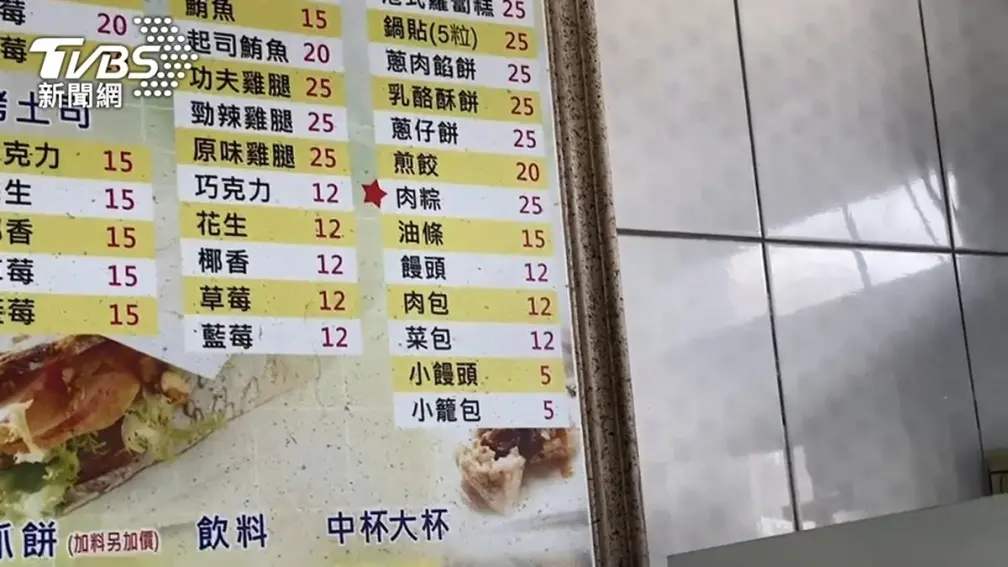 TVBS
新聞網
莓 20
莓
烤土司
克力 15
生 15
椰香 15
草莓 15
藍莓 15
鮪魚 15
起司鮪魚 20
功夫雞腿 25
勁辣雞腿 25
原味雞腿 25
巧克力 12
花生 12
椰香 12
草莓 12
藍莓 12
港式蘿蔔糕 25
鍋貼(5粒) 25
蔥肉餡餅 25
乳酪酥餅 25
蔥仔餅 25
煎餃 20
肉粽 25
油條 15
饅頭 12
肉包 12
菜包 12
小饅頭 5
小籠包 5
抓餅 (加料另加價)
飲料 中杯大杯